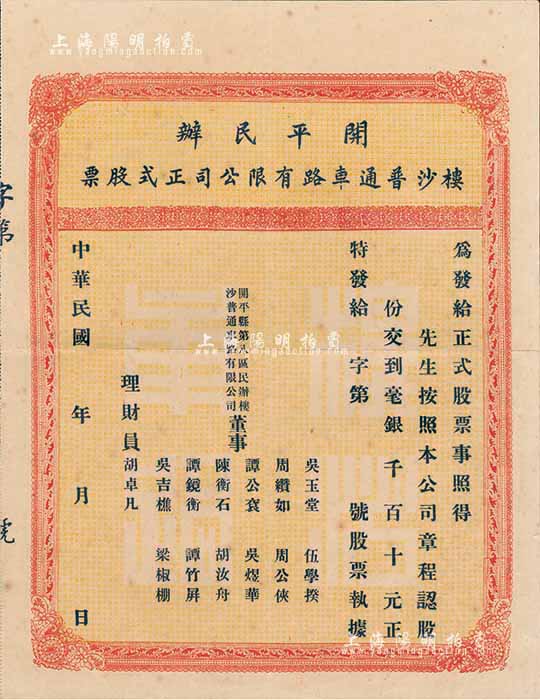 上海陽明拍賣
www.yangmingauction.com
開平民辦
樓沙普通車路有限公司正式股票
為發給正式股票事照得
先生按照本公司章程認股
份交到毫銀 千 百 十 元正
特發給 字第 號股票執據
開平縣第八區民辦樓
沙普通車路有限公司
董事
吳玉堂 伍學揆
周纘如 周公俠
譚公袞 吳煜華
陳衡石 胡汝舟
譚鏡衡 譚竹屏
吳吉樵 梁椒棚
理財員
胡卓凡
中華民國 年 月 日
字第
號
上海陽明拍賣
www.yangmingauction.com
上海陽明拍賣
www.yangmingauction.com